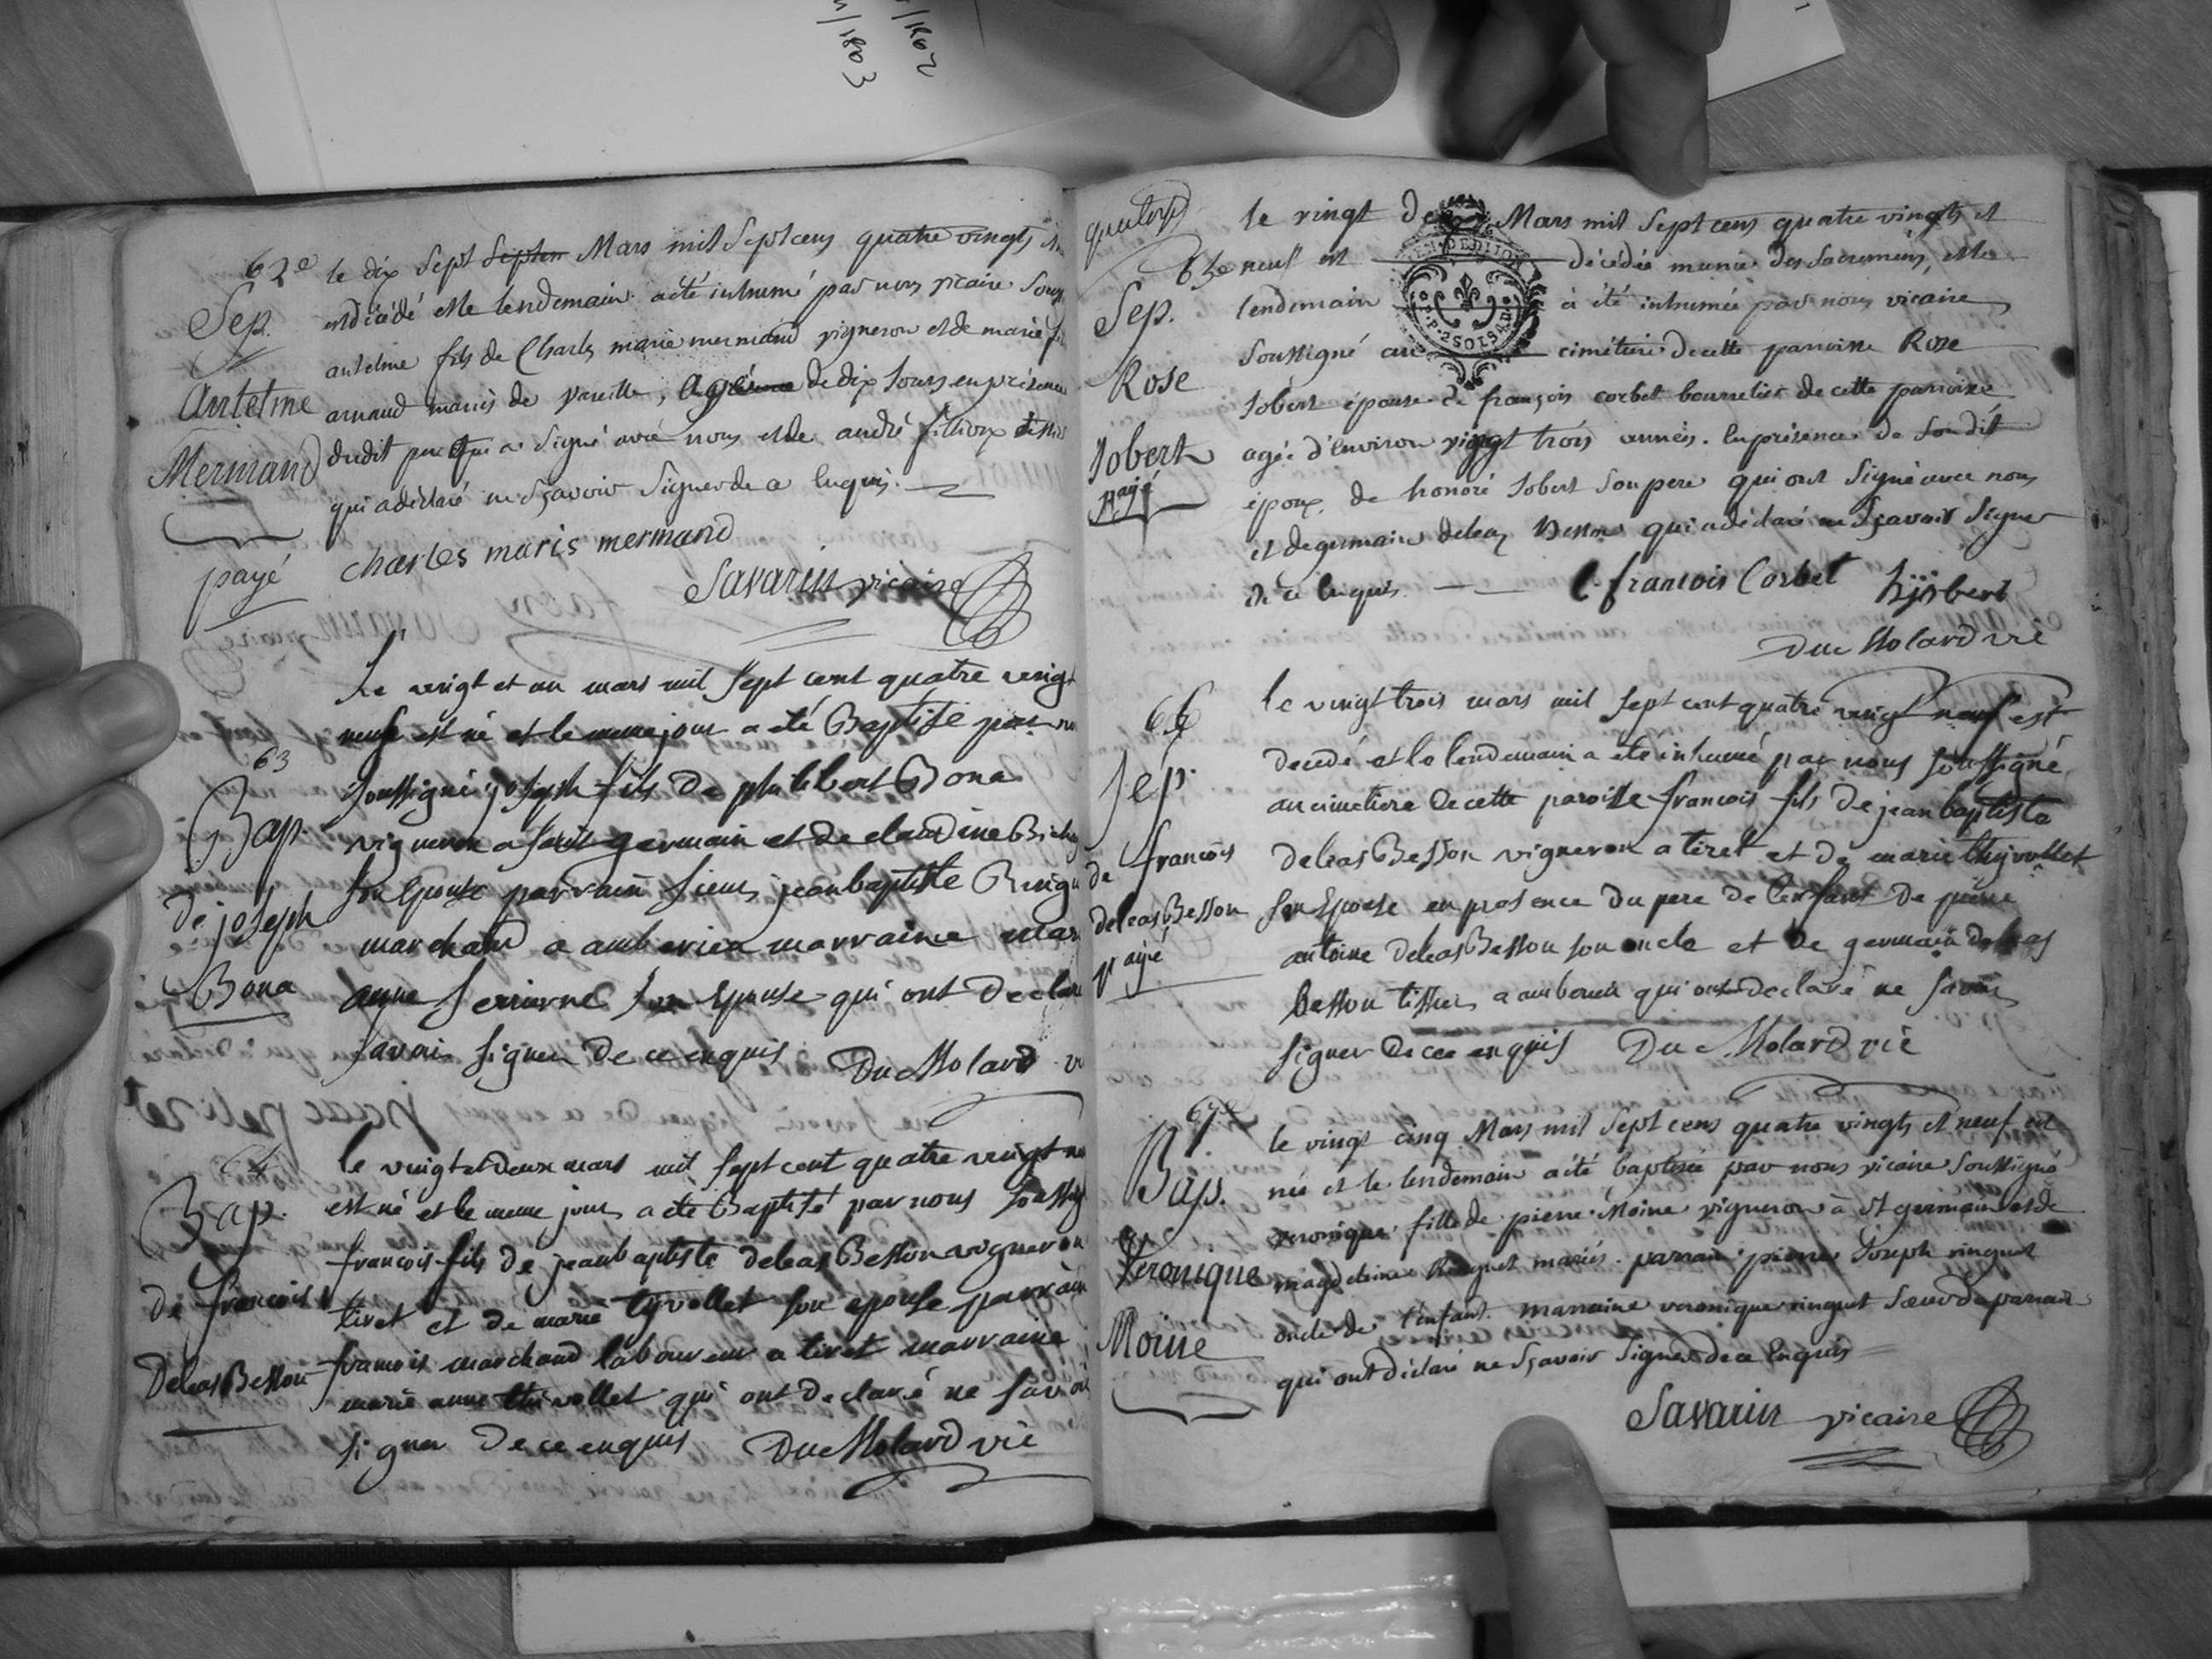 1802
1803
62e
Sep.
Antelme
Mermand
payé
le dix sept septem Mars mil sept cens quatre vingts
est décédé et le lendemain a été inhumé par nous vicaire
antelme fils de Charles marie mermand vigneron et de marie
arnaud mariés de Vareille, agé de dix jours en présence
dudit pere qui a signé avec nous et de andré fillioux
qui a déclaré ne sçavoir signer de ce enquis.
charles maris mermand
Savarin vicaire
63
Bap.
de joseph
Bona
Le vingt et un mars mil sept cent quatre vingt
neuf est né et le meme jour a eté Baptisé par
soussigné joseph fils de philibert Bona
vigneron a saint germain et de claudine
son Epouse parrain sieur jean baptiste
marchand a amberieu marraine
anne serrierne son Epouse qui ont
savoir signer de ce enquis Du Molard
64
Bap.
de francois
Deleas Besson
le vingt et deux mars mil sept cent quatre vingt
est né et le meme jour a eté Baptisé par nous
francois fils de jean baptiste deleas Besson vigneron
tiret et de marie tyvollet son epouse parrain
francois marchand laboureur a tiret marraine
marie anne thivollet qui ont declaré ne
signer de ce enquis Du Molard vic
quatorz
65e
Sep.
Rose
Jobert
payé
le vingt Mars mil sept cens quatre vingts et
neuf est décédée munie des sacremens, et le
lendemain à été inhumée par nous vicaire
soussigné au cimétiere de cette paroisse Rose
Jobert épouse de françois corbet bourrelier de cette paroisse
agée d'environ vingt trois années. En présence de son dit
époux, de honoré Jobert son pere qui ont signé avec nous
et de germain deleaz Besson qui a déclaré ne sçavoir signer
de ce enquis. francois Corbet hjobert
Du Molard vic
66
Sep.
de francois
deleas Besson
payé
le vingt trois mars mil sept cent quatre vingt neuf est
decedé et le lendemain a eté inhumé par nous soussigné
au cimetiere de cette paroisse francois fils de jean baptiste
deleas Besson vigneron a tiret et de marie thyvollet
son Epouse en presence du pere de l'enfant de pierre
antoine deleas Besson son oncle et de germain deleas
besson tissier a amberieu qui ont declaré ne savoir
signer de ce enquis Du Molard vic
67e
Bap.
Veronique
Moine
le vingt cinq Mars mil sept cens quatre vingts et neuf est
née et le lendemain a été baptisée par nous vicaire soussigné
veronique fille de pierre Moine vigneron à st germain et de
magdeleine Ringuet mariés. parrain pierre Joseph ringuet
oncle de l'enfant. marraine veronique ringuet soeur du parrain
qui ont déclaré ne sçavoir signer de ce Enquis
Savarin vicaire